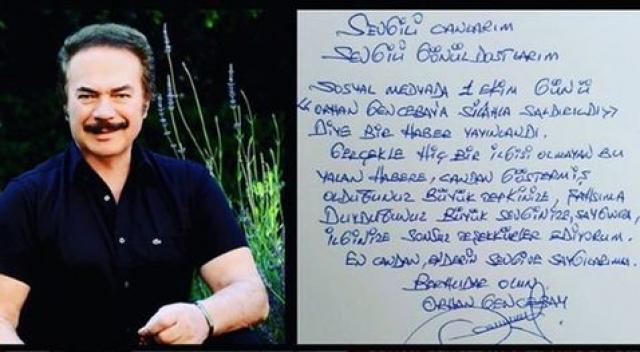 SEVGİLİ CANLARIM
SEVGİLİ GÖNÜL DOSTLARIM
SOSYAL MEDYADA 1 EKİM GÜNÜ
“ORHAN GENCEBAYA SİLAHLA SALDIRILDI”
DİYE BİR HABER YAYINLANDI.
GERÇEKLE HİÇ BİR İLGİSİ OLMAYAN BU
YALAN HABERE, CANDAN GÖSTERMİŞ
OLDUĞUNUZ BÜYÜK TEPKİNİZE, ŞAHSIMA
DUYDUĞUNUZ BÜYÜK SEVGİNİZE, SAYGINIZA,
İLGİNİZE SONSUZ TEŞEKKÜRLER EDİYORUM.
EN CANDAN, EN DERİN SEVGİ VE SAYGILARIMLA.
BERHUDAR OLUN.
ORHAN GENCEBAY